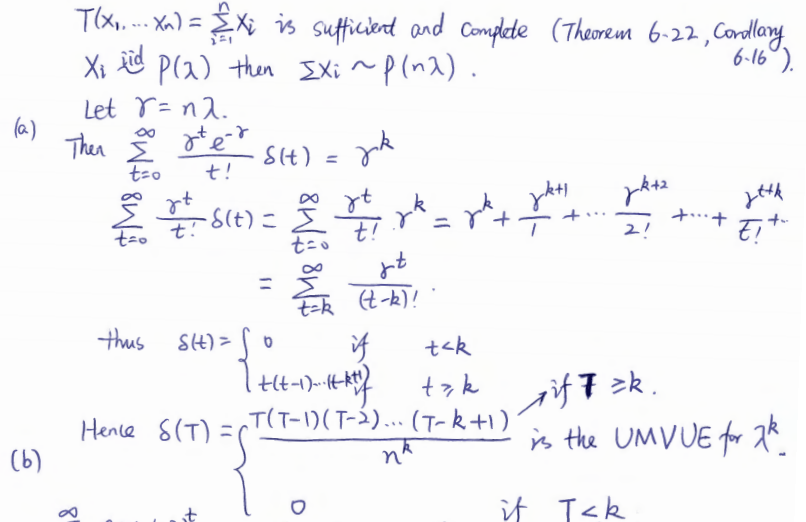 T(x₁, ... xₙ) = Σⁿᵢ₌₁ Xᵢ is sufficient and complete (Theorem 6-22, Corollary 6-16).
Xᵢ iid P(λ) then ΣXᵢ ~ P(nλ).
Let γ = nλ.
(a)
Then Σ^∞_{t=0} γᵗe^{-γ}/t! δ(t) = γᵏ
Σ^∞_{t=0} γᵗ/t! δ(t) = Σ^∞_{t=0} γᵗ/t! γᵏ = γᵏ + γ^{k+1}/1 + ... γ^{k+2}/2! + ... + γ^{t+k}/t! + ..
= Σ^∞_{t=k} γᵗ/(t-k)! .
thus δ(t) = { 0 if t<k
t(t-1)...(t-k+1) if t ≥ k
Hence δ(T) = { T(T-1)(T-2)...(T-k+1)/nᵏ if T ≥ k. is the UMVUE for λᵏ.
(b)
0 if T<k